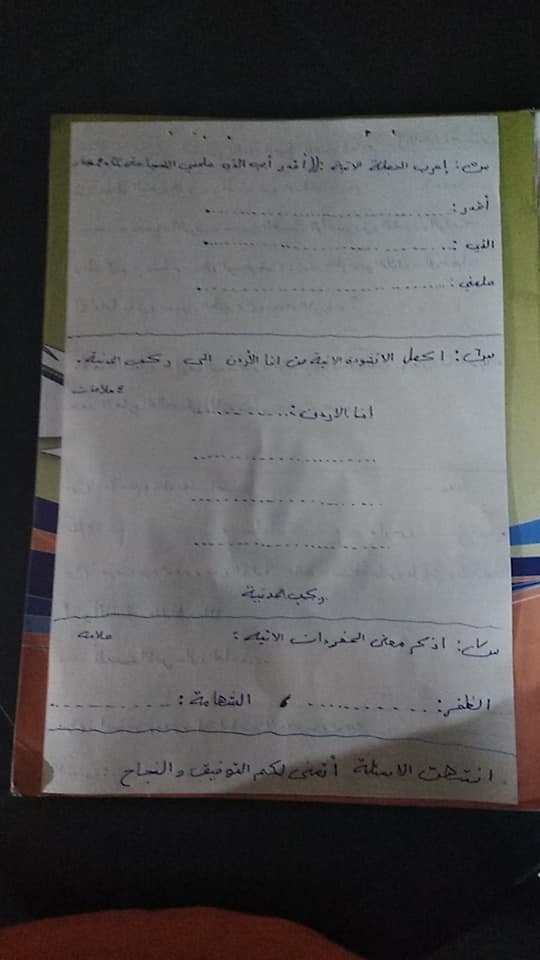 س٥: إعرب الجملة الاتية: ((أقدر أبي الذي علمني السباحة
أقدر: ....................
الذي: ....................
علمني: ....................
س٦: اكمل الانشودة الاتية من انا الأردن الى ركب المدنية.
٤ علامات
انا الاردن: ............
....................
....................
....................
ركب المدنية
اذكر معنى المفردات الاتية: علامة
الظفر: ............ ، الشهامة: ............
انتهت الاسئلة أتمنى لكم التوفيق والنجاح